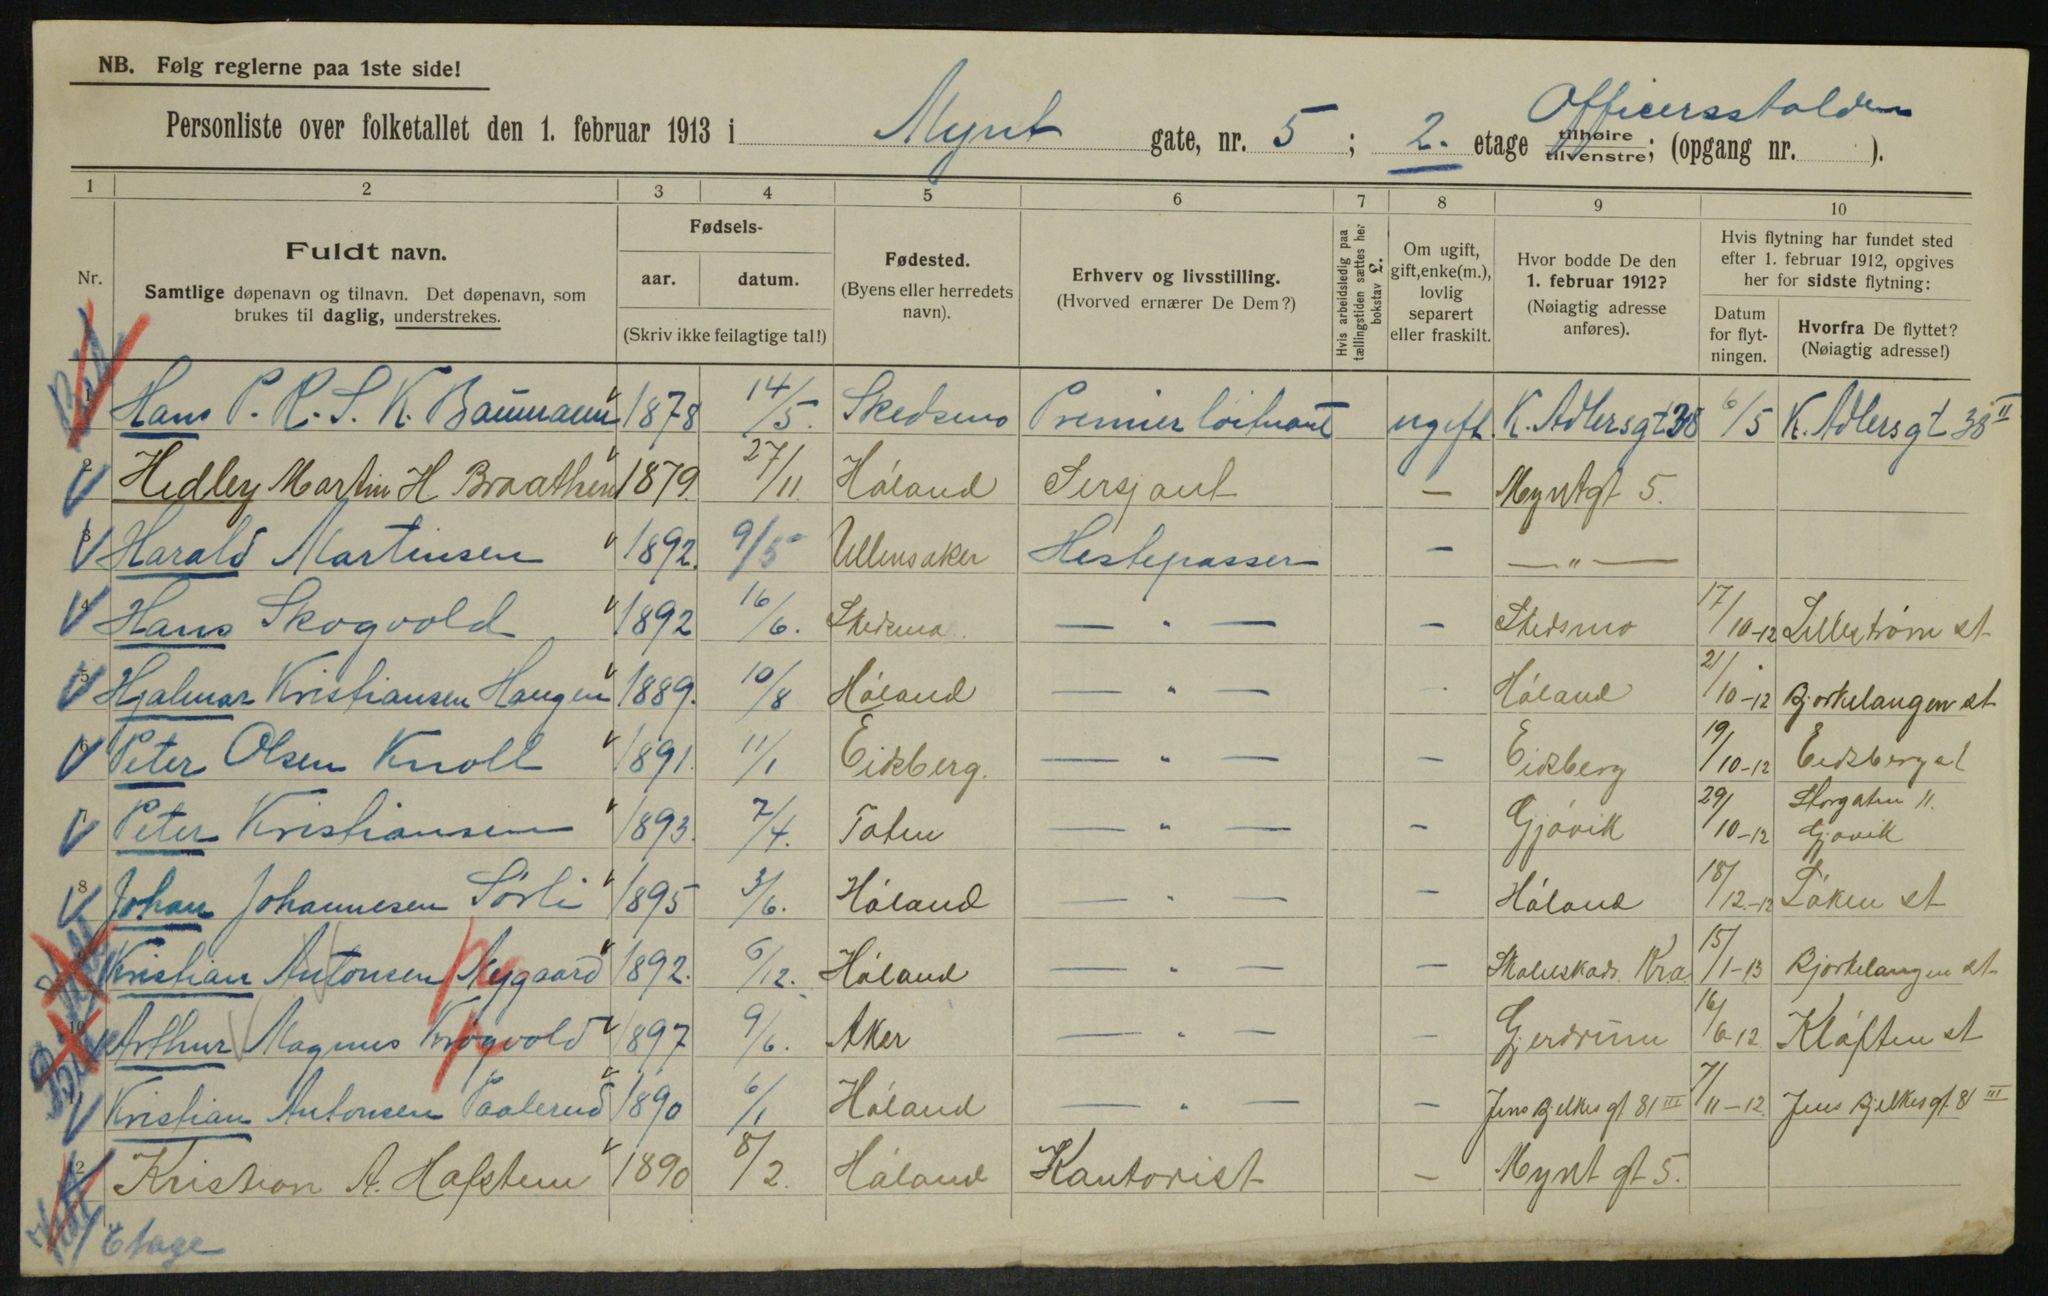 NB. Følg reglerne paa 1ste side!
Officersstalden
Personliste over folketallet den 1. februar 1913 i Mynt gate, nr. 5; 2. etage tilhøire tilvenstre; (opgang nr. ).
1 2 3 4 5 6 7 8 9 10
Nr.
Fuldt navn.
Samtlige døpenavn og tilnavn. Det døpenavn, som
brukes til daglig, understrekes.
Fødsels-
aar. datum.
(Skriv ikke feilagtige tal!)
Fødested.
(Byens eller herredets
navn).
Erhverv og livsstilling.
(Hvorved ernærer De Dem?)
Hvis arbeidsledig paa
tællingstiden sættes her
bokstav L.
Om ugift,
gift, enke(m.),
lovlig
separert
eller fraskilt.
Hvor bodde De den
1. februar 1912?
(Nøiagtig adresse
anføres).
Hvis flytning har fundet sted
efter 1. februar 1912, opgives
her for sidste flytning:
Datum
for flyt-
ningen.
Hvorfra De flyttet?
(Nøiagtig adresse!)
1 Hans P. R. S. K. Baumann 1878 14/5. Skedsmo Premierløitnant ugift. K. Adlersgt 38 6/5 K. Adlersgt 38 II
2 Hedley Martin H Braathen 1879. 27/11. Høland Sersjant — Myntgt 5.
3 Harald Martinsen 1892. 9/5 Ullensaker Hestepasser — — " —
4 Hans Skogvold 1892 16/6. Skedsmo — " — — Skedsmo 17/10-12 Lillestrøm st
5 Hjalmar Kristiansen Haugen 1889. 10/8 Høland — " — - Høland 21/10-12 Bjørkelangen st
6 Peter Olsen Knoll 1891. 11/1 Eidsberg. — " — — Eidsberg 19/10-12 Eidsberg st
7 Peter Kristiansen 1893. 7/4. Toten — " — — Gjøvik 29/10-12 Storgaten 11. Gjøvik
8 Johan Johannesen Sørli 1895 3/6. Høland — " — — Høland 18/12-12 Løken st
Kristian Antonsen Nygaard 1892. 6/12. Høland — " — — Kra. 15/1-13 Bjørkelangen st
10 Arthur Magnus Krogvold 1897 9/6. Aker — " — — Gjerdrum 16/6-12 Kløften st
Kristian Antonsen Paalerud 1890 6/1 Høland — " — — Jens Bjelkesgt. 81 III 7/11-12. Jens Bjelkesgt. 81 III
12 Kristian A. Hafsten 1890 8/2. Høland Kantorist — Mynt gt 5.
Etage